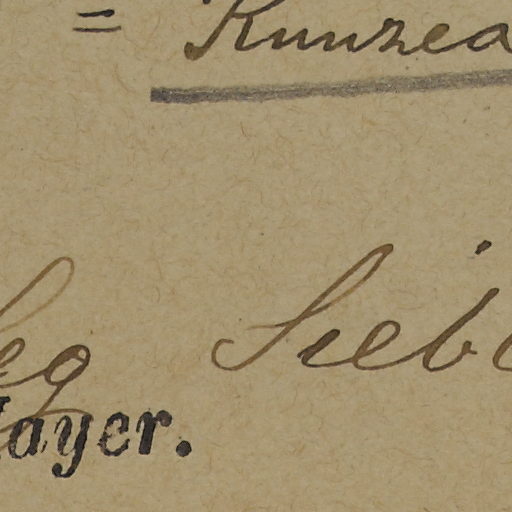 = Kunzea
leg Sieb
Mayer.